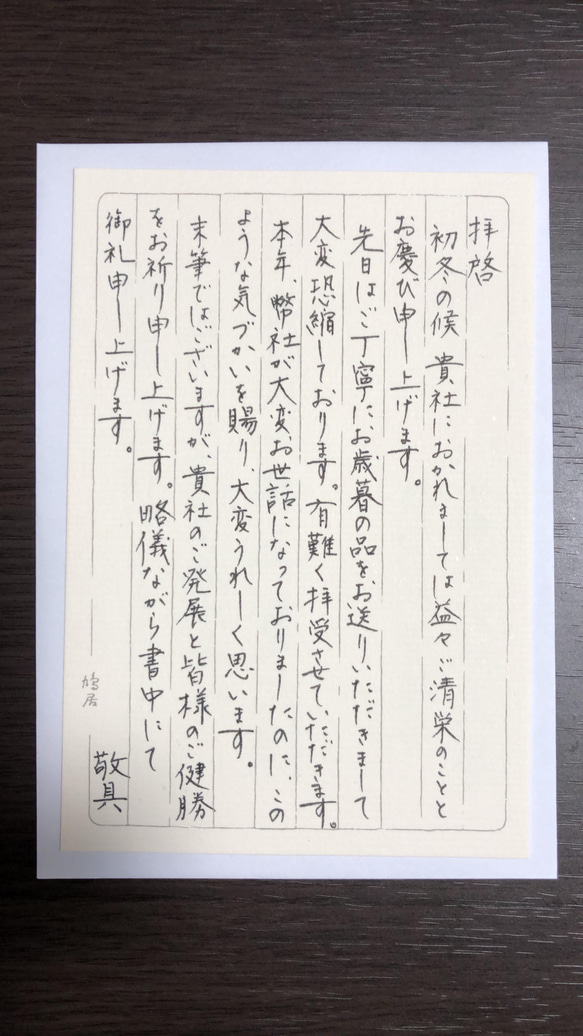 拝啓
初冬の候 貴社におかれましては益々ご清栄のことと
お慶び申し上げます。
先日はご丁寧に、お歳暮の品をお送りいただきまして
大変恐縮しております。有難く拝受させていただきます。
本年、幣社が大変お世話になっておりましたのに、この
ような気づかいを賜り 大変うれしく思います。
末筆ではございますが、貴社のご発展と皆様のご健勝
をお祈り申し上げます。略儀ながら書中にて
御礼申し上げます。
敬具
鳩居